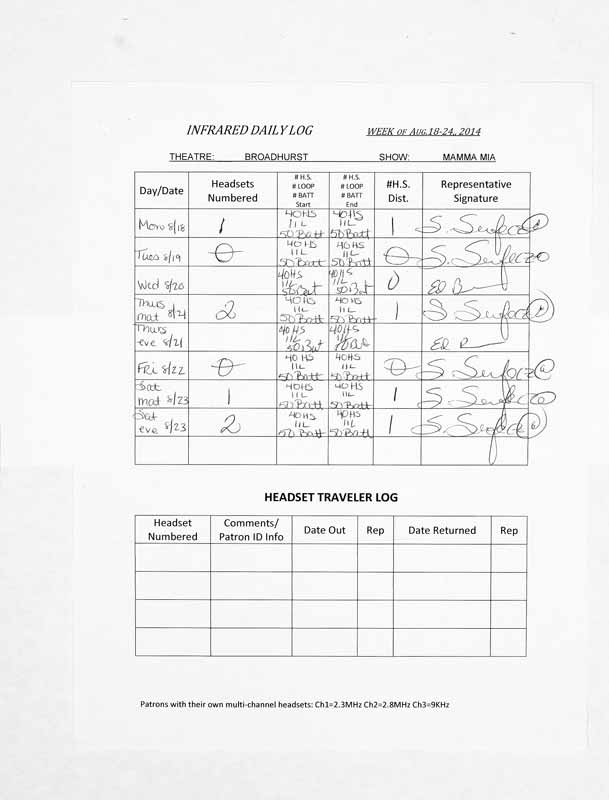 INFRARED DAILY LOG WEEK OF AUG.18-24, 2014
THEATRE: BROADHURST SHOW: MAMMA MIA
Day/Date Headsets Numbered # H.S. # LOOP # BATT Start # H.S. # LOOP # BATT End #H.S. Dist. Representative Signature
Mon 8/18 1 40HS 11L 50 Batt 40HS 11L 50 Batt 1 S.
Tues 8/19 0 40HS 11L 50 Batt 40HS 11L 50 Batt 0 S.
Wed 8/20 40HS 11L 50 Bat 40HS 11L 50 Bat 0 Ed
Thurs mat 8/21 2 40HS 11L 50 Batt 40HS 11L 50 Batt 1 S
Thurs eve 8/21 40HS 11L 50 Bat 40HS 11L 50 Bat Ed
Fri 8/22 0 40HS 11L 50 Batt 40HS 11L 50 Batt 0 S
Sat mat 8/23 1 40HS 11L 50 Batt 40HS 11L 50 Batt 1 S.
Sat eve 8/23 2 40HS 11L 50 Batt 40HS 11L 50 Batt 1 S.
HEADSET TRAVELER LOG
Headset Numbered Comments/ Patron ID Info Date Out Rep Date Returned Rep
Patrons with their own multi-channel headsets: Ch1=2.3MHz Ch2=2.8MHz Ch3=9KHz